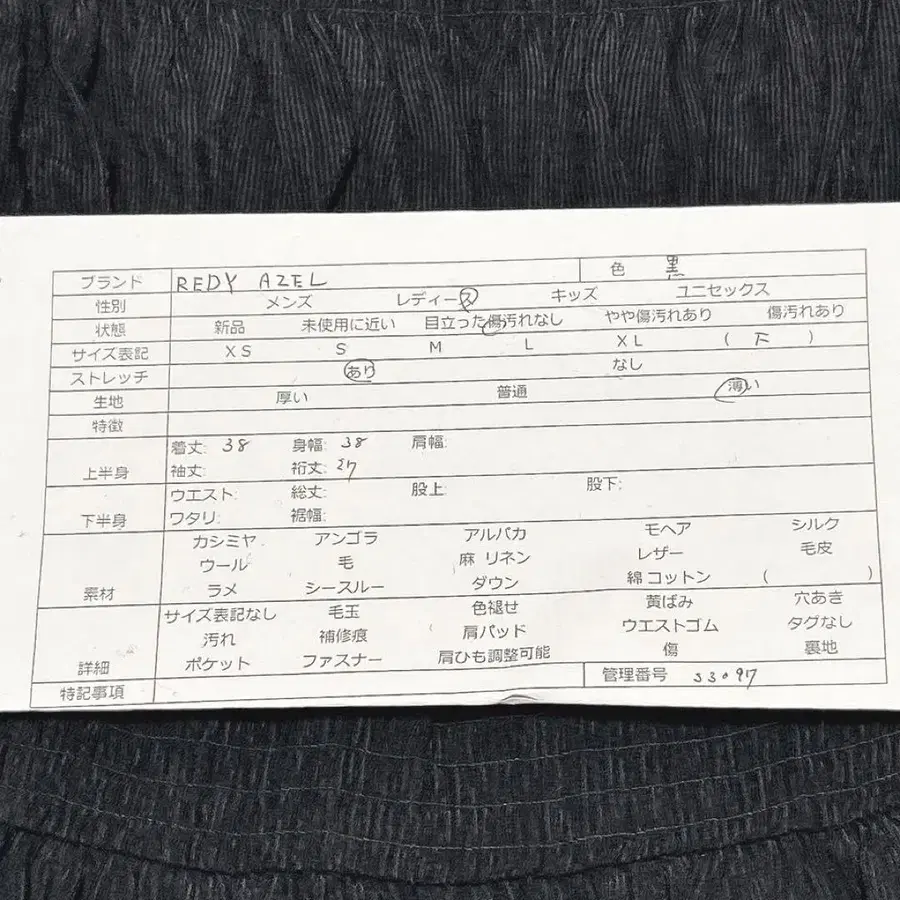 ブランド REDY AZEL 色 黒
性別 メンズ レディース キッズ ユニセックス
状態 新品 未使用に近い 目立った傷汚れなし やや傷汚れあり 傷汚れあり
サイズ表記 XS S M L XL ( F )
ストレッチ あり なし
生地 厚い 普通 薄い
特徴
上半身 着丈: 38 身幅: 38 肩幅:
袖丈: 裄丈: 27
下半身 ウエスト: 総丈: 股上: 股下:
ワタリ: 裾幅:
素材 カシミヤ アンゴラ アルパカ モヘア シルク
ウール 毛 麻 リネン レザー 毛皮
ラメ シースルー ダウン 綿 コットン ( )
詳細 サイズ表記なし 毛玉 色褪せ 黄ばみ 穴あき
汚れ 補修痕 肩パッド ウエストゴム タグなし
ポケット ファスナー 肩ひも調整可能 傷 裏地
特記事項 管理番号 53097